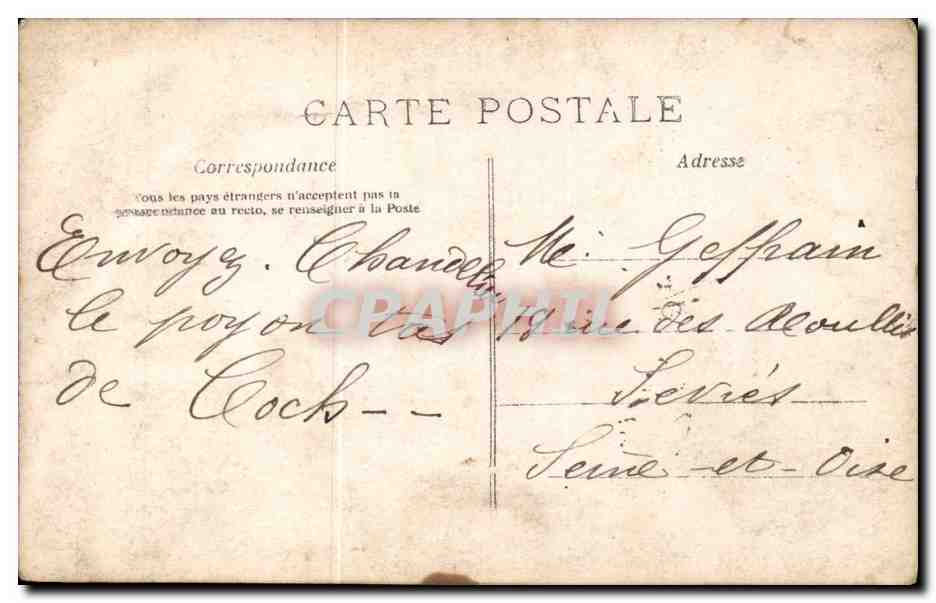 CARTE POSTALE
Correspondance
Tous les pays étrangers n'acceptent pas la
correspondance au recto, se renseigner à la Poste
Envoyez. Chandelier
le poyon tas
de Coch--
Adresse
Mr. Geffrain
19 rue des
Sevrés
Seine-et-Oise
CPAPHIL